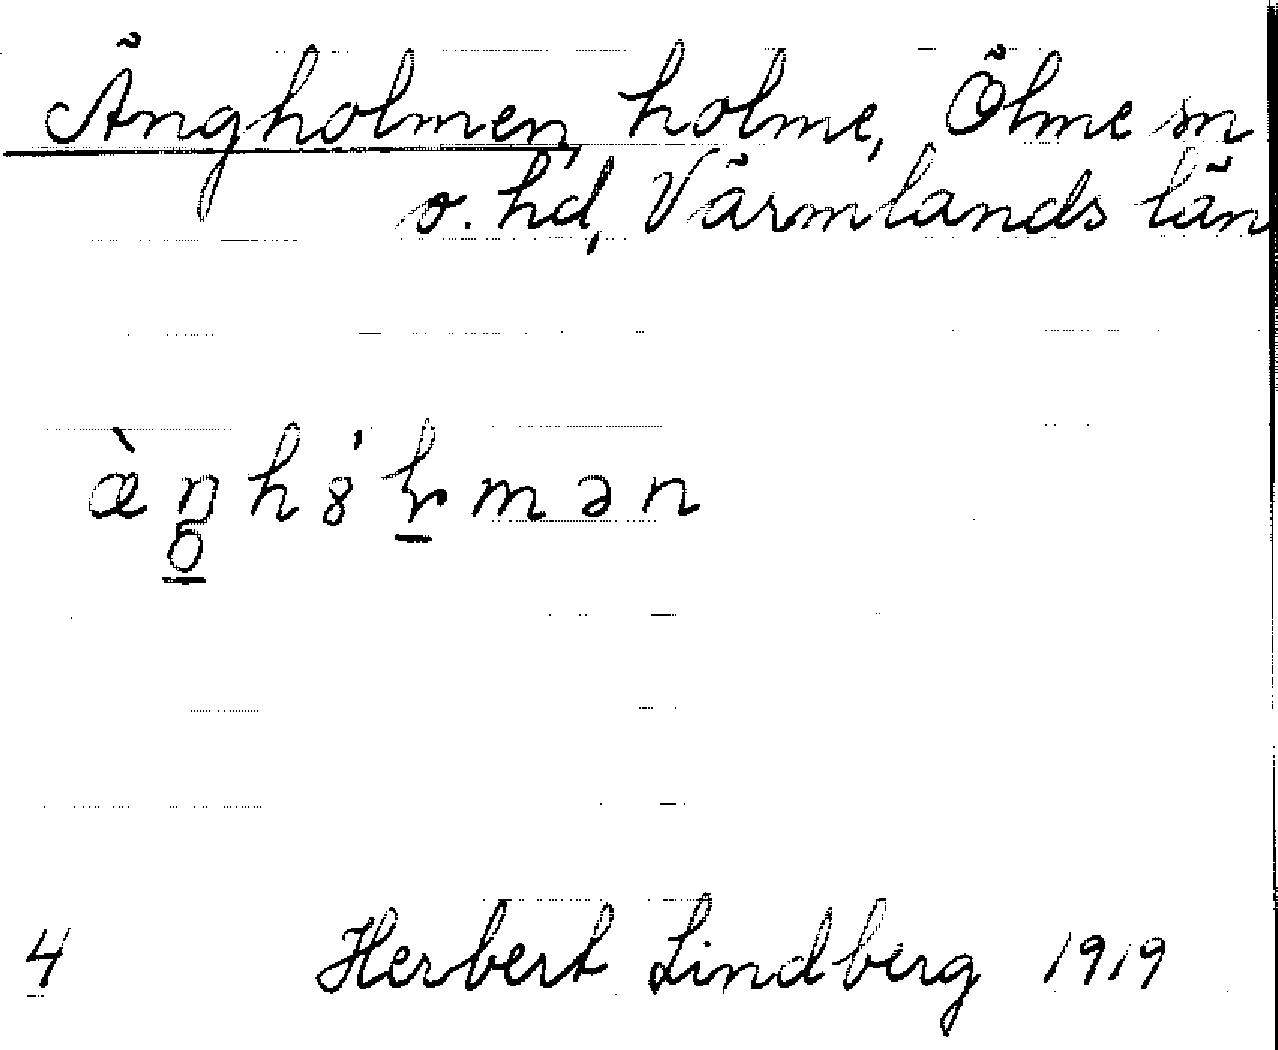 Ängholmen, holme, Ölme sn
o. hd, Värmlands län
æ̀ŋhȣ́ɽmən
4 Herbert Lindberg 1919